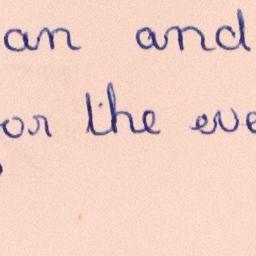 an and
or the eve